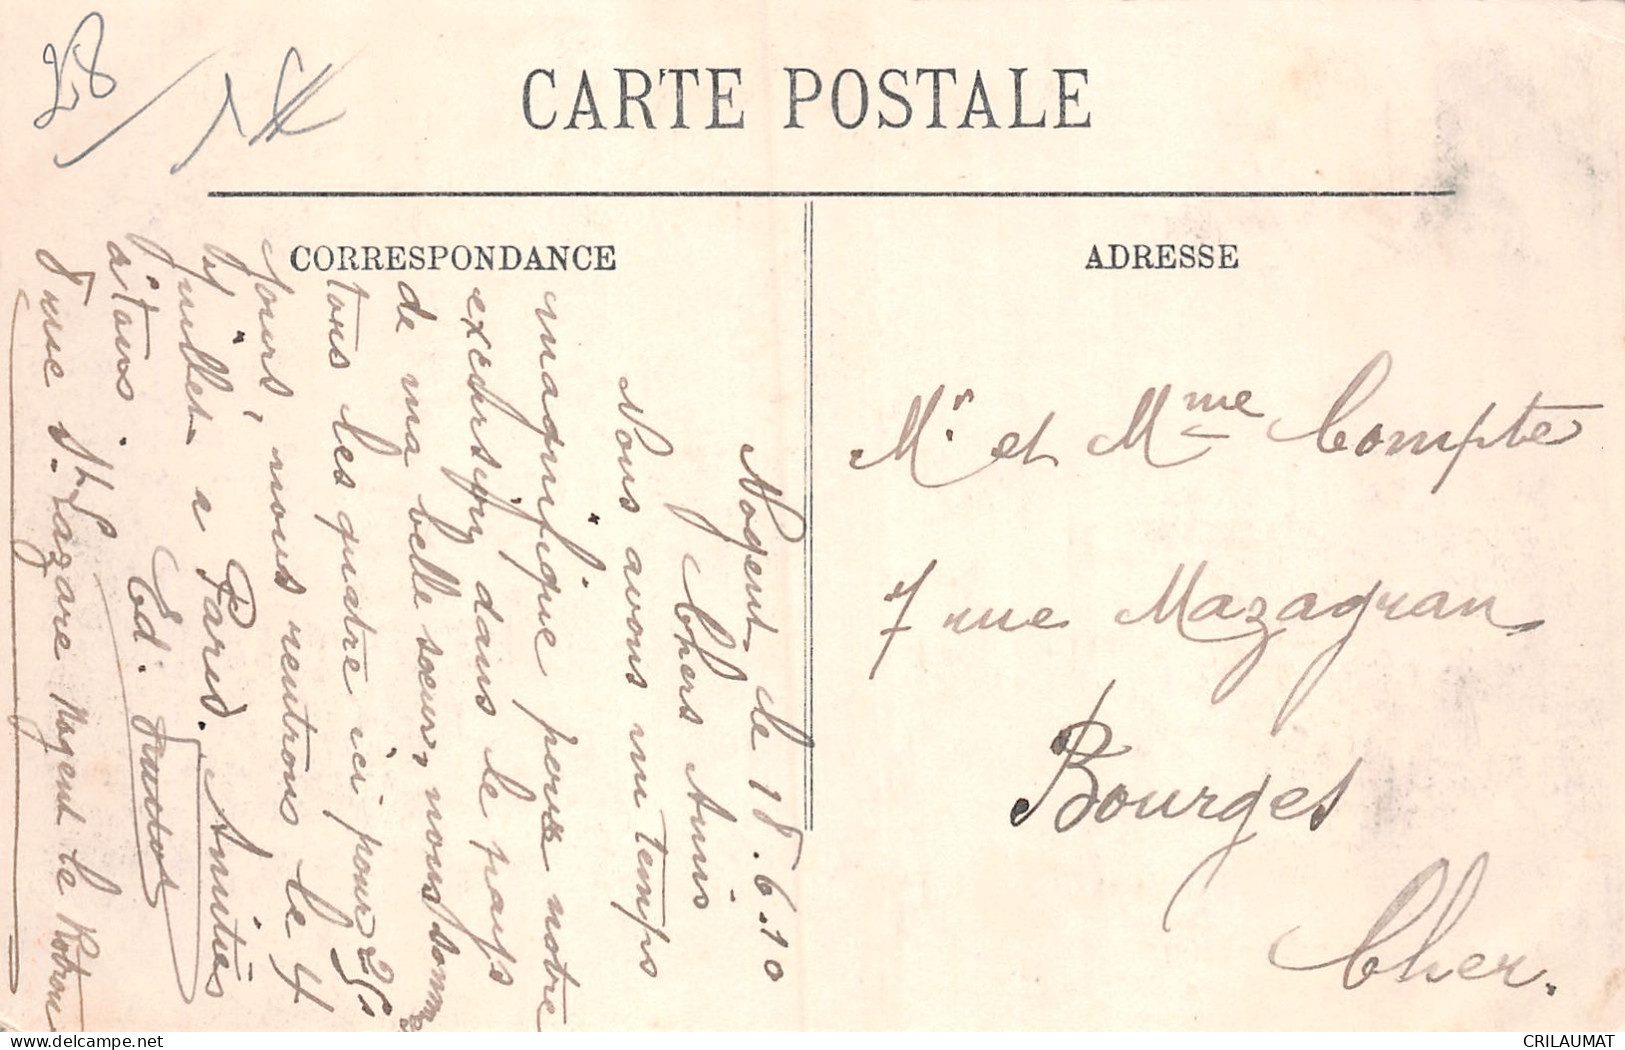 28
CARTE POSTALE
CORRESPONDANCE
ADRESSE
Nogent le 18.6.10
Chers Amis
Nous avons un temps
magnifique pour notre
excursion dans le pays
de ma belle sœur, nous sommes
tous les quatre ici pour 25
jours, nous rentrons le 4
Juillet a Paris. Amitiés
à tous.
Ed.
rue St Lazare Nogent le Rotrou
Mr. et Mme Compte
7 rue Mazagran
Bourges
Cher.
delcampe.net
CRILAUMAT